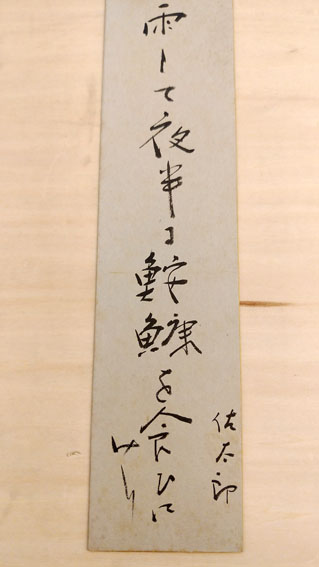 雨して夜半に鮟鱇を食ひに
けり
佐太郎